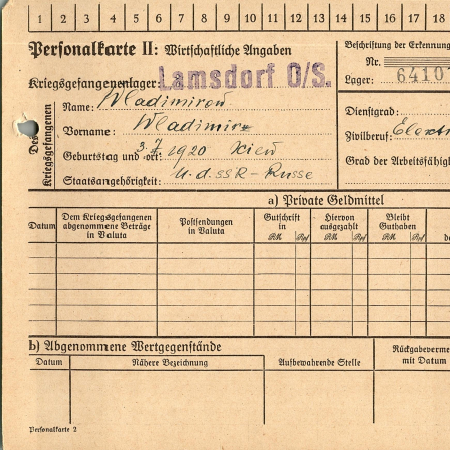 1 2 3 4 5 6 7 8 9 10 11 12 13 14 15 16 17 18
Personalkarte II: Wirtschaftliche Angaben
Beschriftung der Erkennung
Nr. 6410
Kriegsgefangenenlager: Lamsdorf O/S.
Lager:
Des Kriegsgefangenen
Name: Wladimirow
Vorname: Wladimir
Geburtstag und -ort: 3.7.1920 Kiew
Staatsangehörigkeit: U.d.SSR - Russe
Dienstgrad:
Zivilberuf: Elektr
Grad der Arbeitsfähig
a) Private Geldmittel
Datum
Dem Kriegsgefangenen abgenommene Beträge in Valuta
Postsendungen in Valuta
Gutschrift in
RM Rpf
Hiervon ausgezahlt
RM Rpf
Bleibt Guthaben
RM Rpf
b) Abgenommene Wertgegenstände
Datum
Nähere Bezeichnung
Aufbewahrende Stelle
Rückgabeverme
mit Datum
Personalkarte 2